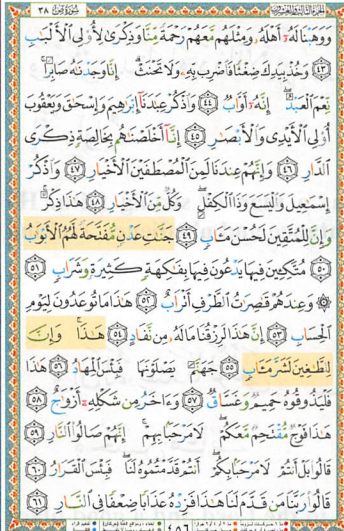 سُورَةُ صٓ ٣٨
وَوَهَبْنَا لَهُۥٓ أَهْلَهُۥ وَمِثْلَهُم مَّعَهُمْ رَحْمَةً مِّنَّا وَذِكْرَىٰ لِأُو۟لِى ٱلْأَلْبَٰبِ
٤٣ وَخُذْ بِيَدِكَ ضِغْثًا فَٱضْرِب بِّهِۦ وَلَا تَحْنَثْ ۗ إِنَّا وَجَدْنَٰهُ صَابِرًا ۚ
نِّعْمَ ٱلْعَبْدُ ۖ إِنَّهُۥٓ أَوَّابٌ ٤٤ وَٱذْكُرْ عِبَٰدَنَآ إِبْرَٰهِيمَ وَإِسْحَٰقَ وَيَعْقُوبَ
أُو۟لِى ٱلْأَيْدِى وَٱلْأَبْصَٰرِ ٤٥ إِنَّآ أَخْلَصْنَٰهُم بِخَالِصَةٍ ذِكْرَى
ٱلدَّارِ ٤٦ وَإِنَّهُمْ عِندَنَا لَمِنَ ٱلْمُصْطَفَيْنَ ٱلْأَخْيَارِ ٤٧ وَٱذْكُرْ
إِسْمَٰعِيلَ وَٱلْيَسَعَ وَذَا ٱلْكِفْلِ ۖ وَكُلٌّ مِّنَ ٱلْأَخْيَارِ ٤٨ هَٰذَا ذِكْرٌ ۚ
وَإِنَّ لِلْمُتَّقِينَ لَحُسْنَ مَـَٔابٍ ٤٩ جَنَّٰتِ عَدْنٍ مُّفَتَّحَةً لَّهُمُ ٱلْأَبْوَٰبُ
٥٠ مُتَّكِـِٔينَ فِيهَا يَدْعُونَ فِيهَا بِفَٰكِهَةٍ كَثِيرَةٍ وَشَرَابٍ ٥١
۞ وَعِندَهُمْ قَٰصِرَٰتُ ٱلطَّرْفِ أَتْرَابٌ ٥٢ هَٰذَا مَا تُوعَدُونَ لِيَوْمِ
ٱلْحِسَابِ ٥٣ إِنَّ هَٰذَا لَرِزْقُنَا مَا لَهُۥ مِن نَّفَادٍ ٥٤ هَٰذَا ۚ وَإِنَّ
لِلطَّٰغِينَ لَشَرَّ مَـَٔابٍ ٥٥ جَهَنَّمَ يَصْلَوْنَهَا فَبِئْسَ ٱلْمِهَادُ ٥٦ هَٰذَا
فَلْيَذُوقُوهُ حَمِيمٌ وَغَسَّاقٌ ٥٧ وَءَاخَرُ مِن شَكْلِهِۦٓ أَزْوَٰجٌ ٥٨
هَٰذَا فَوْجٌ مُّقْتَحِمٌ مَّعَكُمْ ۖ لَا مَرْحَبًۢا بِهِمْ ۚ إِنَّهُمْ صَالُوا۟ ٱلنَّارِ ٥٩
قَالُوا۟ بَلْ أَنتُمْ لَا مَرْحَبًۢا بِكُمْ ۖ أَنتُمْ قَدَّمْتُمُوهُ لَنَا ۖ فَبِئْسَ ٱلْقَرَارُ ٦٠
قَالُوا۟ رَبَّنَا مَن قَدَّمَ لَنَا هَٰذَا فَزِدْهُ عَذَابًا ضِعْفًا فِى ٱلنَّارِ ٦١
٤٥٦